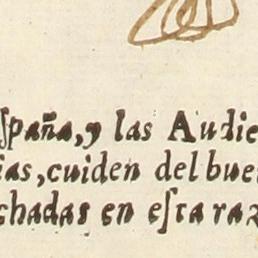 ſpaña, y las Audie
ias, cuiden del bue
chadas en eſta raz